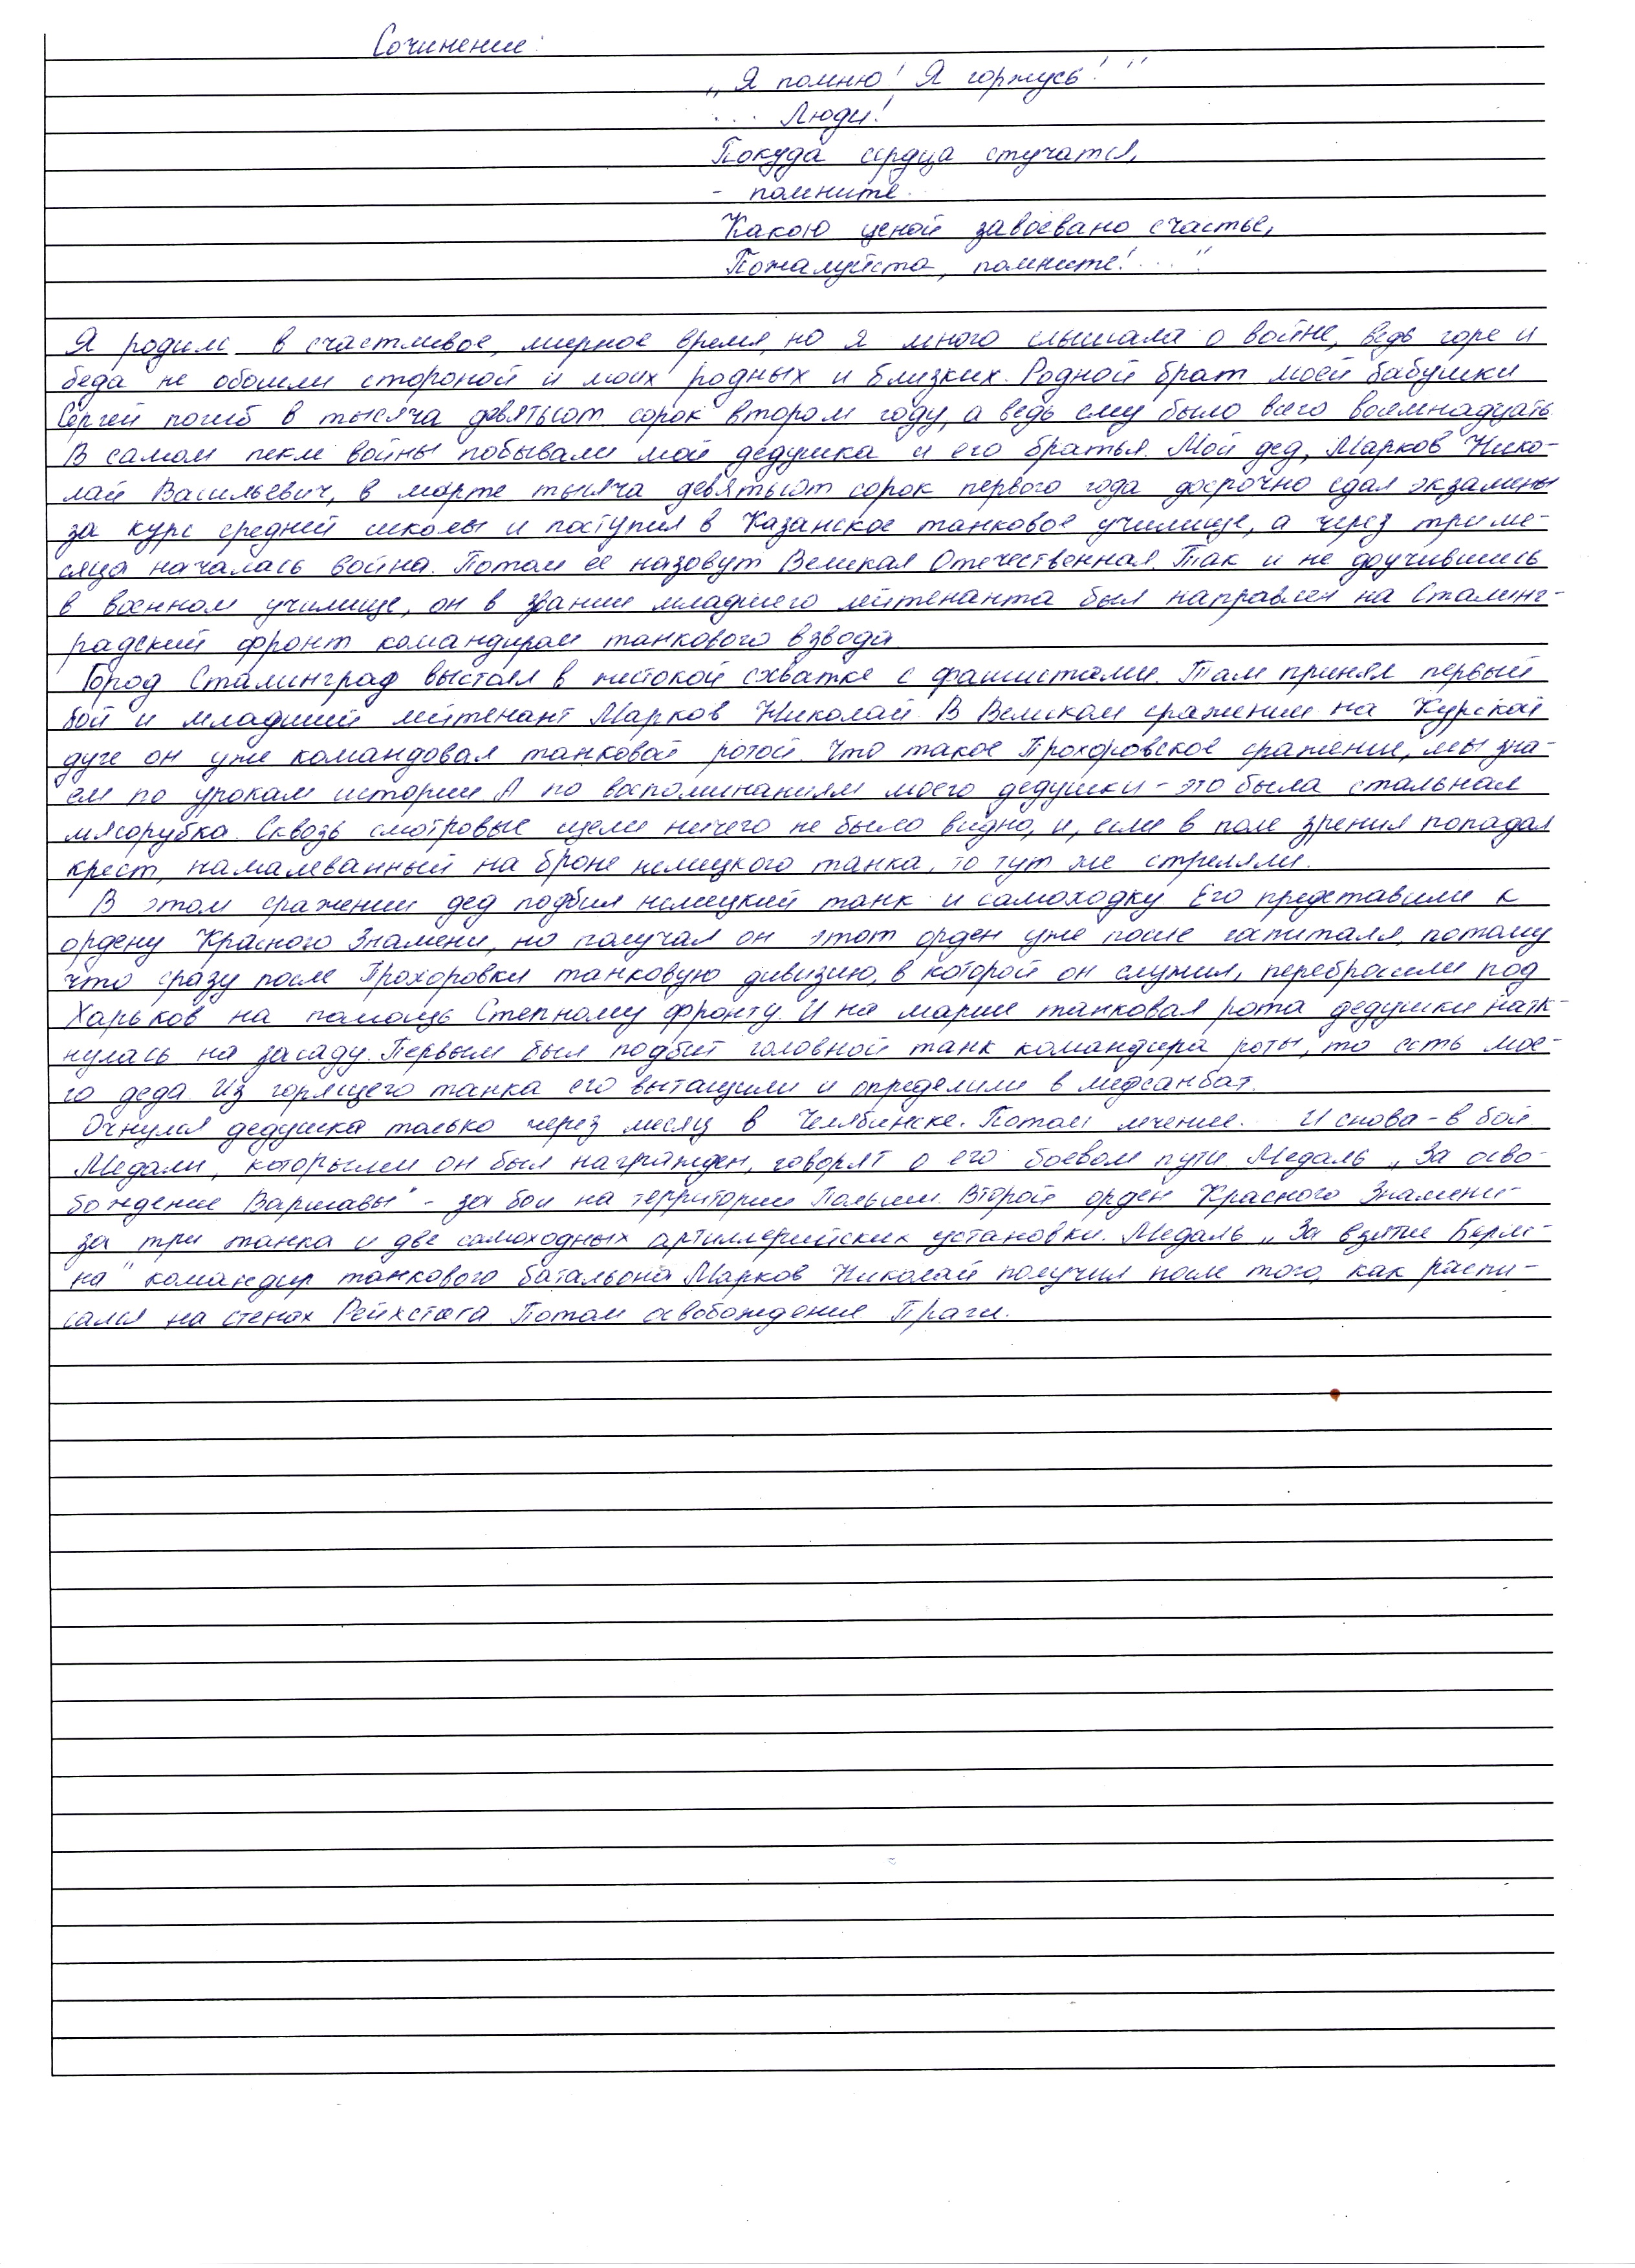 Сочинение:
„Я помню! Я горжусь!"
... Люди!
Покуда сердца стучатся,
- помните.
Какою ценой завоевано счастье,
Пожалуйста, помните!..."
Я родилс в счастливое, мирное время, но я много слышала о войне, ведь горе и
беда не обошли стороной и моих родных и близких. Родной брат моей бабушки
Сергей погиб в тысяча девятьсот сорок втором году, а ведь ему было всего восемнадцать.
В самом пекле войны побывали мой дедушка и его братья. Мой дед, Марков Нико-
лай Васильевич, в марте тысяча девятьсот сорок первого года досрочно сдал экзамены
за курс средней школы и поступил в Казанское танковое училище, а через три ме-
сяца началась война. Потом ее назовут Великая Отечественная. Так и не доучившись
в военном училище, он в звании младшего лейтенанта был направлен на Сталинг-
радский фронт командиром танкового взвода.
Город Сталинград выстоял в жестокой схватке с фашистами. Там принял первый
бой и младший лейтенант Марков Николай. В Великом сражении на Курской
дуге он уже командовал танковой ротой. Что такое Прохоровское сражение, мы зна-
ем по урокам истории. А по воспоминаниям моего дедушки - это была стальная
мясорубка. Сквозь смотровые щели ничего не было видно, и, если в поле зрения попадал
крест, намалеванный на броне немецкого танка, то тут же стреляли.
В этом сражении дед подбил немецкий танк и самоходку. Его представили к
ордену Красного Знамени, но получал он этот орден уже после госпиталя, потому
что сразу после Прохоровки танковую дивизию, в которой он служил, перебросили под
Харьков на помощь Степному фронту. И на марше танковая рота дедушки натк-
нулась на засаду. Первым был подбит головной танк командира роты, то есть мое-
го деда. Из горящего танка его вытащили и определили в медсанбат.
Очнулся дедушка только через месяц в Челябинске. Потом лечение... И снова - в бой.
Медали, которыми он был награжден, говорят о его боевом пути. Медаль „За осво-
бождение Варшавы" - за бои на территории Польши. Второй орден Красного Знамени -
за три танка и две самоходных артиллерийских установки. Медаль „За взятие Берли-
на" командир танкового батальона Марков Николай получил после того, как распи-
сался на стенах Рейхстага. Потом освобождение Праги.